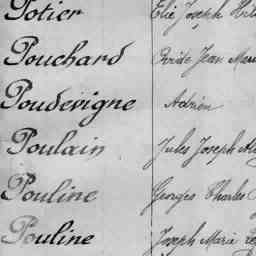 Potier Elie Joseph
Pouchard Jean Marie
Pouderigne Adrien
Poulain Jules Joseph
Pouline Georges Charles
Pouline Joseph Marie